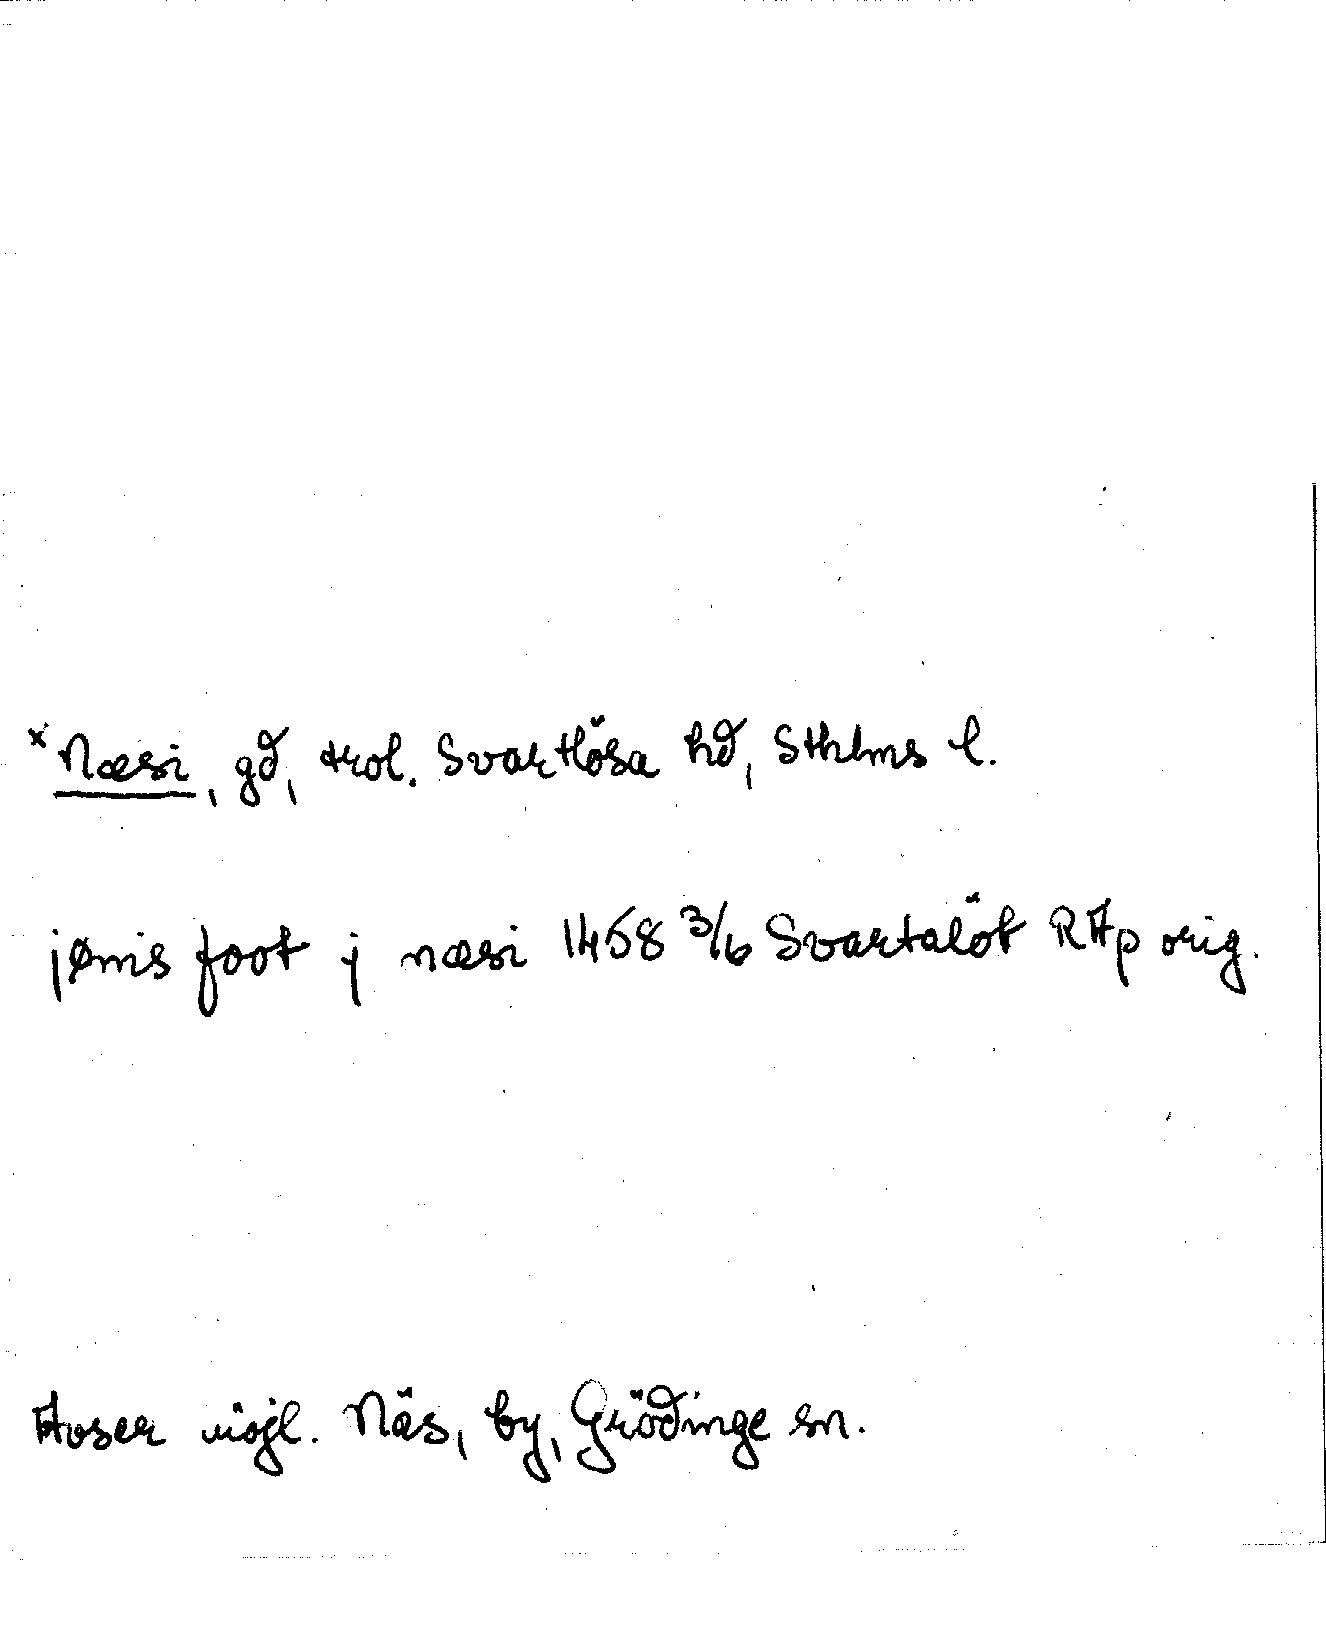 ×Næsi, gd, trol. Svartlösa hd, Sthlms l.
jønis foot j næsi 1458 3/6 Svartalöt RAp orig.
Avser möjl. Näs, by, Grödinge sn.